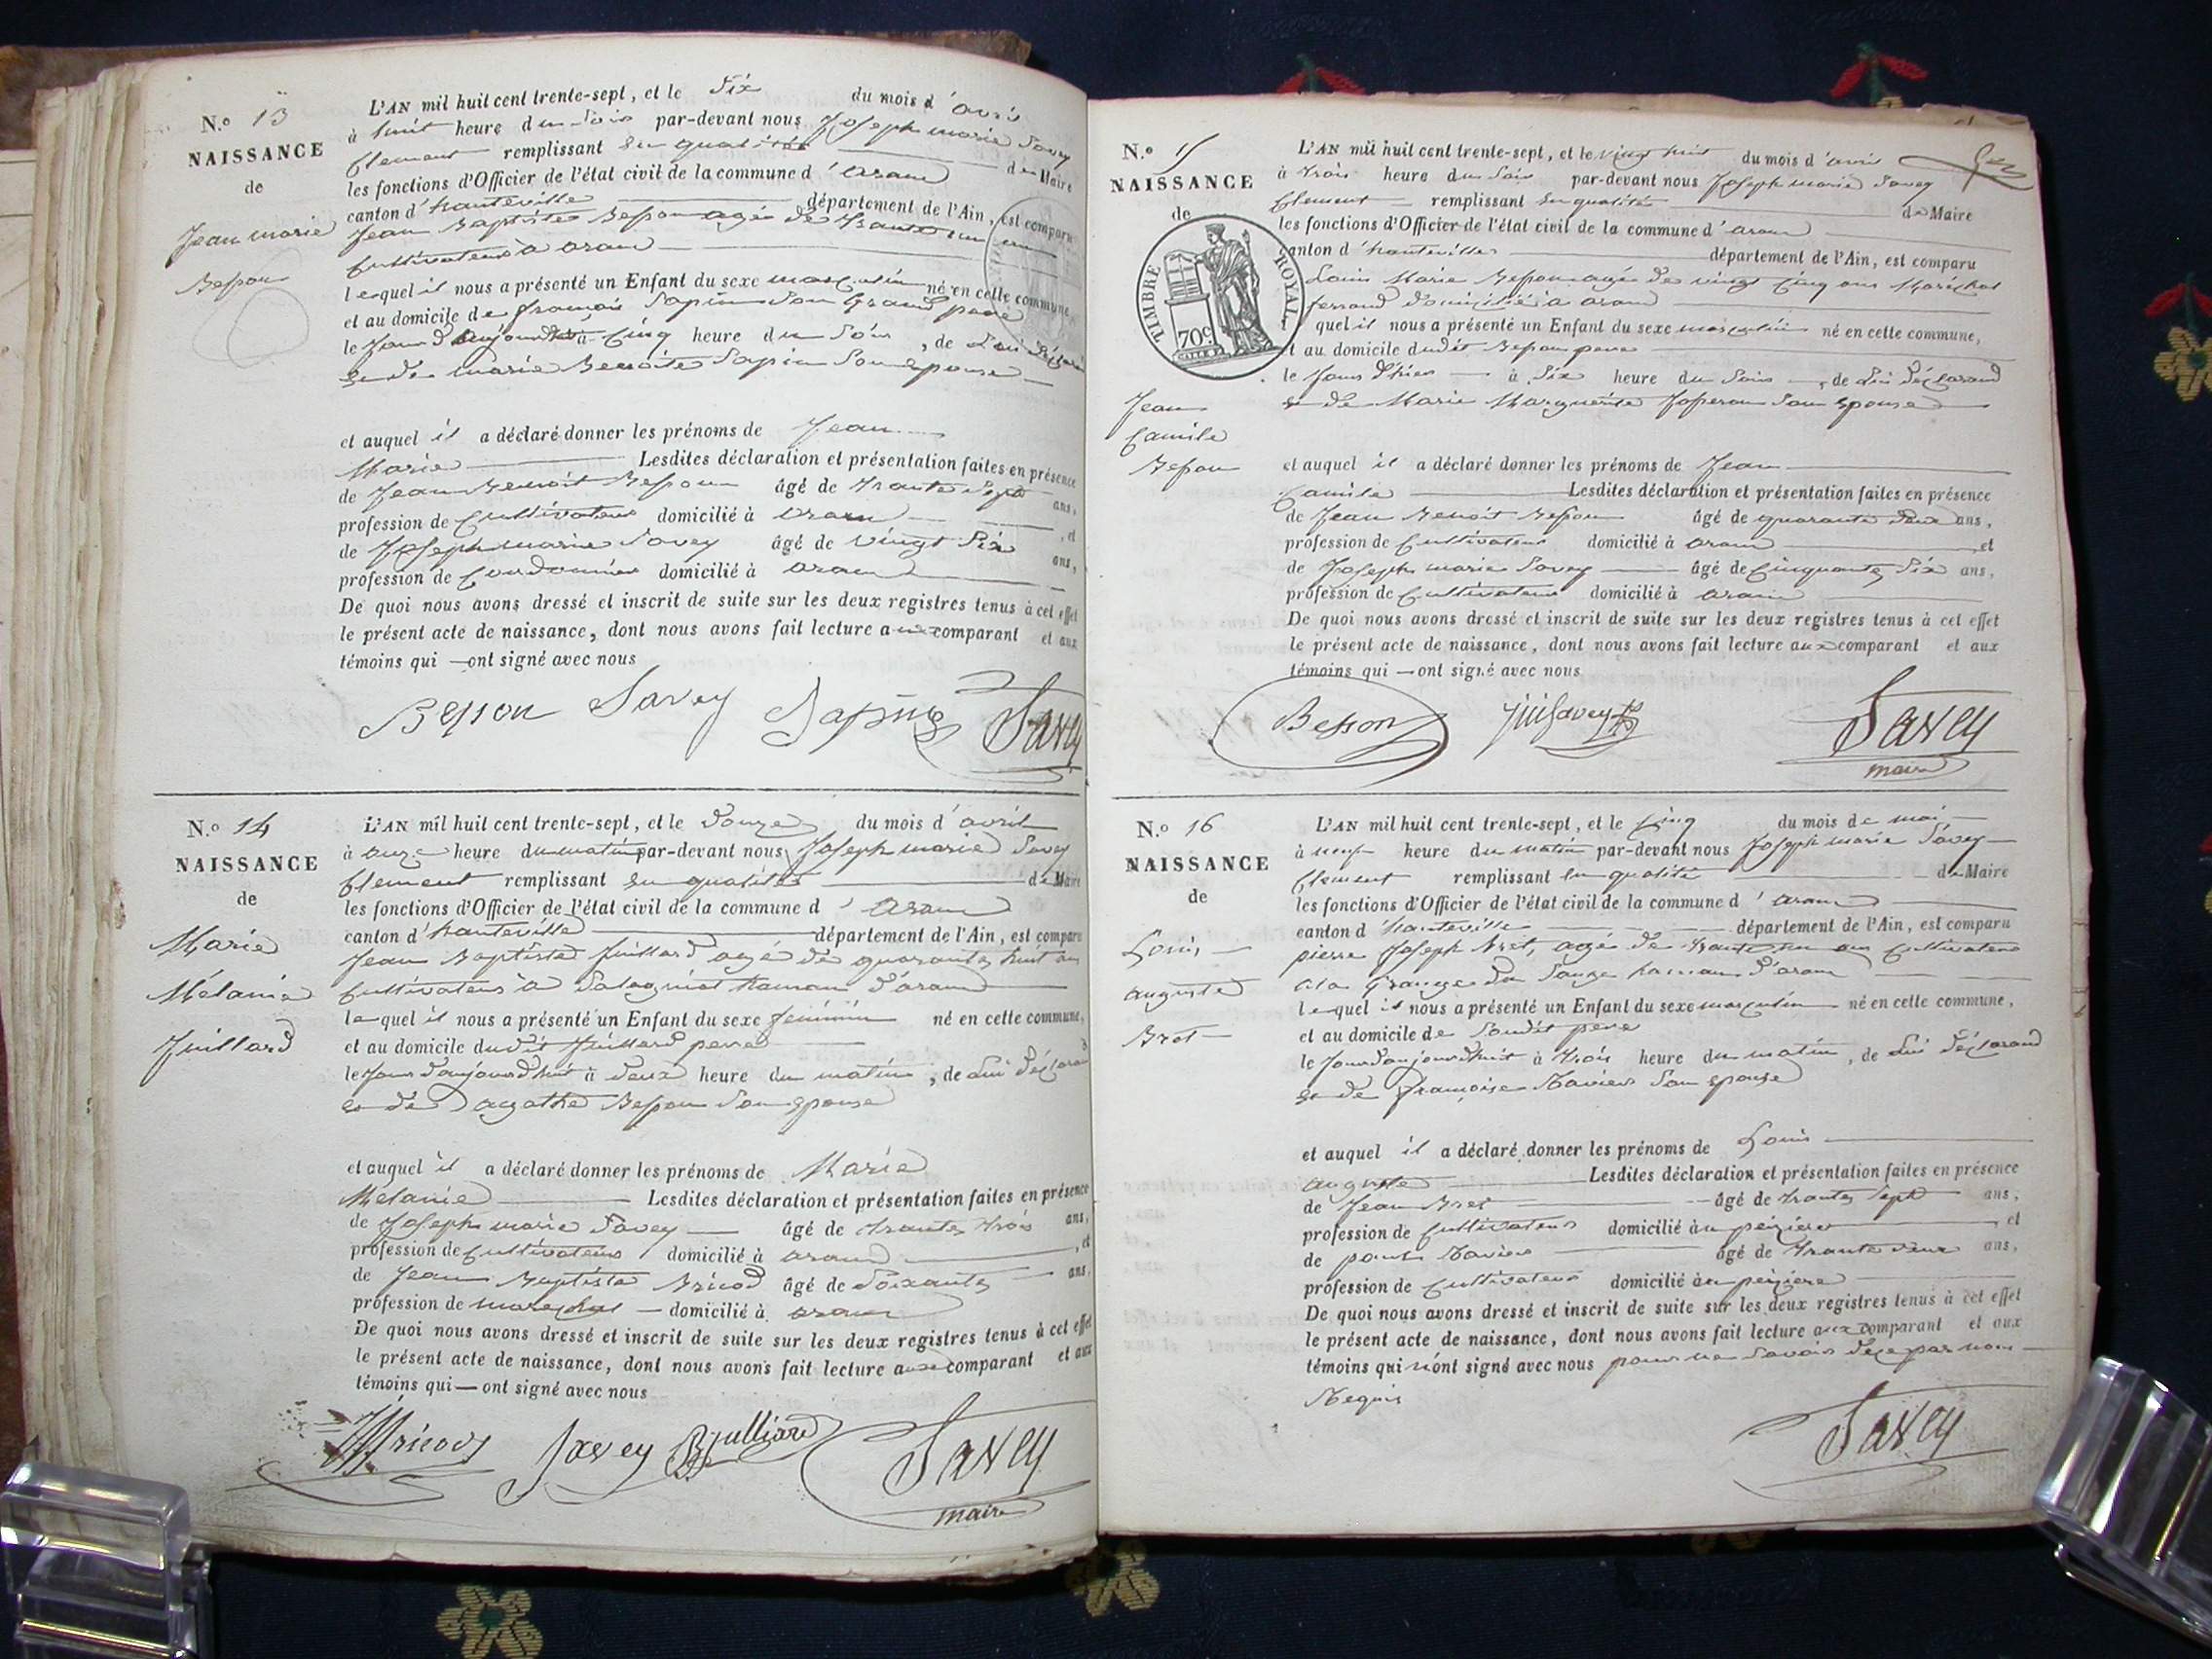 N.o 13
NAISSANCE
de
Jean marie
Besson
L'AN mil huit cent trente-sept, et le Six du mois d'avril
à huit heure du Soir par-devant nous Joseph marie Savey
Clement remplissant En qualités de Maire
les fonctions d'Officier de l'état civil de la commune d'aranc
canton d'hauteville département de l'Ain, est comparu
Jean Baptiste Besson agé de Trante un ans
Cultivateur à aranc
lequel il nous a présenté un Enfant du sexe masculin né en cette commune,
et au domicile de françois Sapin Son Grand pere
le Jour d'aujourdhui à Cinq heure du Soir, de Lui déclarand
Et de marie Benoite Sapin Son Epouse
et auquel il a déclaré donner les prénoms de Jean
Marie Lesdites déclaration et présentation faites en présence
de Jean Benoit Besson âgé de Trante Sept ans,
profession de Cultivateur domicilié à aranc, et
de Joseph marie Savey âgé de vingt Six ans,
profession de Cordonnier domicilié à aranc
De quoi nous avons dressé et inscrit de suite sur les deux registres tenus à cet effet
le présent acte de naissance, dont nous avons fait lecture aux comparant et aux
témoins qui ont signé avec nous
Besson Savey Sapin Savey
N.o 14
NAISSANCE
de
Marie
Mélanie
Juillard
L'AN mil huit cent trente-sept, et le Douze du mois d'avril
à onze heure du matin par-devant nous Joseph marie Savey
Clement remplissant En qualités de Maire
les fonctions d'Officier de l'état civil de la commune d'aranc
canton d'hauteville département de l'Ain, est comparu
Jean Baptiste Juillard agé de quarante huit ans
Cultivateur à Malagniat hamau d'aranc
lequel il nous a présenté un Enfant du sexe feminin né en cette commune,
et au domicile dudit Juillard pere
le Jour d'aujourdhuit à deux heure du matin, de Lui déclarand
Et de agathe Besson Son Epouse
et auquel il a déclaré donner les prénoms de Marie
Melanie Lesdites déclaration et présentation faites en présence
de Joseph marie Savey âgé de trante trois ans,
profession de Cultivateur domicilié à aranc, et
de Jean Baptiste Bricod âgé de Soixante ans,
profession de marechal domicilié à aranc
De quoi nous avons dressé et inscrit de suite sur les deux registres tenus à cet effet
le présent acte de naissance, dont nous avons fait lecture aux comparant et aux
témoins qui ont signé avec nous
Bricod Savey Bjulliard Savey
maire
N.o 15
NAISSANCE
de
TIMBRE ROYAL
70c.
Jean
Camile
Besson
L'AN mil huit cent trente-sept, et le vingt huit du mois d'avril
à trois heure du Soir par-devant nous Joseph marie Savey
Clement remplissant En qualités de Maire
les fonctions d'Officier de l'état civil de la commune d'aranc
canton d'hauteville département de l'Ain, est comparu
Louis Marie Besson agée de vingt Cinq ans Maréchal
ferrand domicilié à aranc
quel il nous a présenté un Enfant du sexe masculin né en cette commune,
et au domicile dudit Besson pere
le Jour d'hier à Six heure du Soir, de Lui déclarand
Et de Marie Marguerite Joperon Son Epouse
et auquel il a déclaré donner les prénoms de Jean
Camile Lesdites déclaration et présentation faites en présence
de Jean Benoit Besson âgé de quarante deux ans,
profession de Cultivateur domicilié à aranc et
de Joseph marie Savey âgé de Cinquante Six ans,
profession de Cultivateur domicilié à aranc
De quoi nous avons dressé et inscrit de suite sur les deux registres tenus à cet effet
le présent acte de naissance, dont nous avons fait lecture aux comparant et aux
témoins qui ont signé avec nous
Besson Savey Savey
maire
N.o 16
NAISSANCE
de
Louis
auguste
Bret
L'AN mil huit cent trente-sept, et le Cinq du mois de mai
à neuf heure du matin par-devant nous Joseph marie Savey
Clement remplissant En qualité de Maire
les fonctions d'Officier de l'état civil de la commune d'aranc
canton d'hauteville département de l'Ain, est comparu
pierre Joseph Bret, agé de trante un ans Cultivateur
a la Grange du Sauge hamau d'aranc
lequel il nous a présenté un Enfant du sexe masculin né en cette commune,
et au domicile de Soudit pere
le Jour d'aujourdhuit à trois heure du matin, de Lui déclarand
Et de françoise Tavier Son Epouse
et auquel il a déclaré donner les prénoms de Louis
auguste Lesdites déclaration et présentation faites en présence
de Jean Bret âgé de trante Sept ans,
profession de Cultivateur domicilié à, et
de Tavier âgé de trante deux ans,
profession de Cultivateur domicilié à
De quoi nous avons dressé et inscrit de suite sur les deux registres tenus à cet effet
le présent acte de naissance, dont nous avons fait lecture aux comparant et aux
témoins qui n'ont signé avec nous pour ne Savoir de ce par nous
Requis
Savey